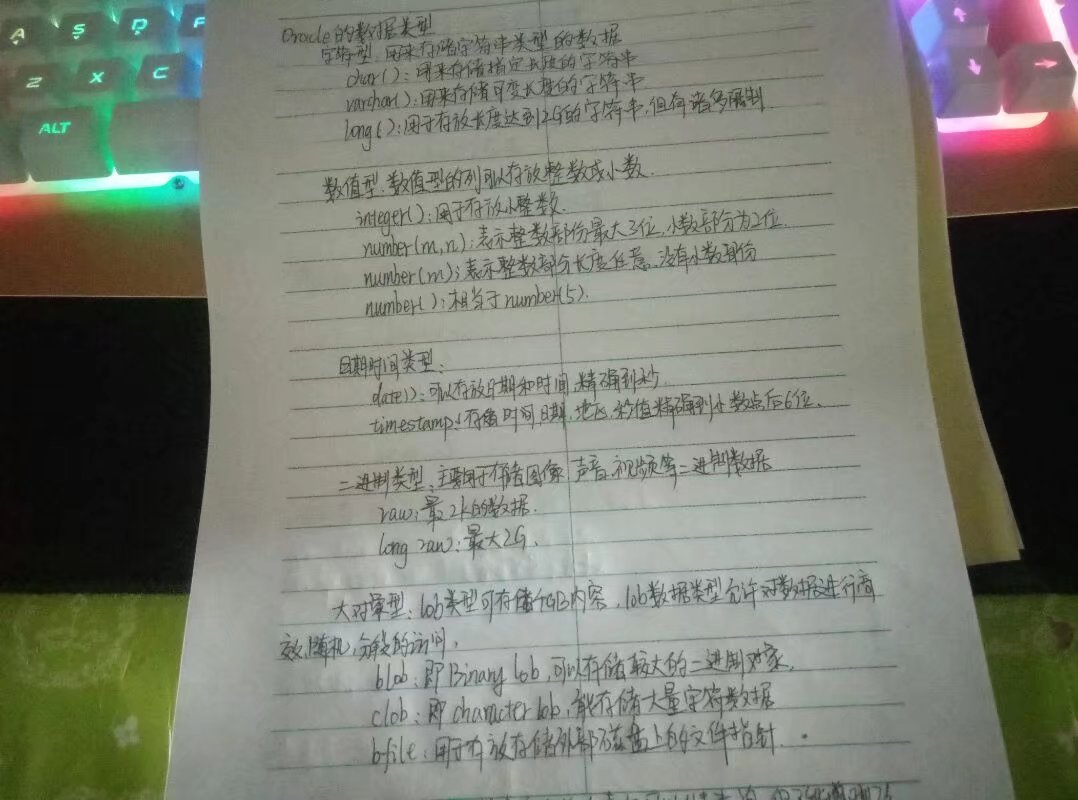 A S D F
Z X C
ALT
Oracle的数据类型
字符型:用来存储字符串类型的数据
char():用来存储指定长度的字符串
varchar():用来存储可变长度的字符串
long():用于存放长度达到2G的字符串,但有诸多限制
数值型:数值型的列可以存放整数或小数.
integer():用于存放小整数.
number(m,n):表示整数部份最大3位,小数部分为2位.
number(m):表示整数部分长度任意,没有小数部份
number():相当于number(5).
日期时间类型:
date():可以存放日期和时间,精确到秒.
timestamp:存储时间,日期,地区,秒值精确到小数点后6位.
二进制类型:主要用于存储图像 声音,视频等二进制数据
raw:最2k的数据.
long raw:最大2G.
大对象型:lob类型可存储4GB内容,lob数据类型允许对数据进行高
效,随机,分段的访问.
blob:即Binary lob,可以存储较大的二进制对象.
clob:即character lob,能存储大量字符数据
bfile:用于存放存储外部磁盘上的文件指针.